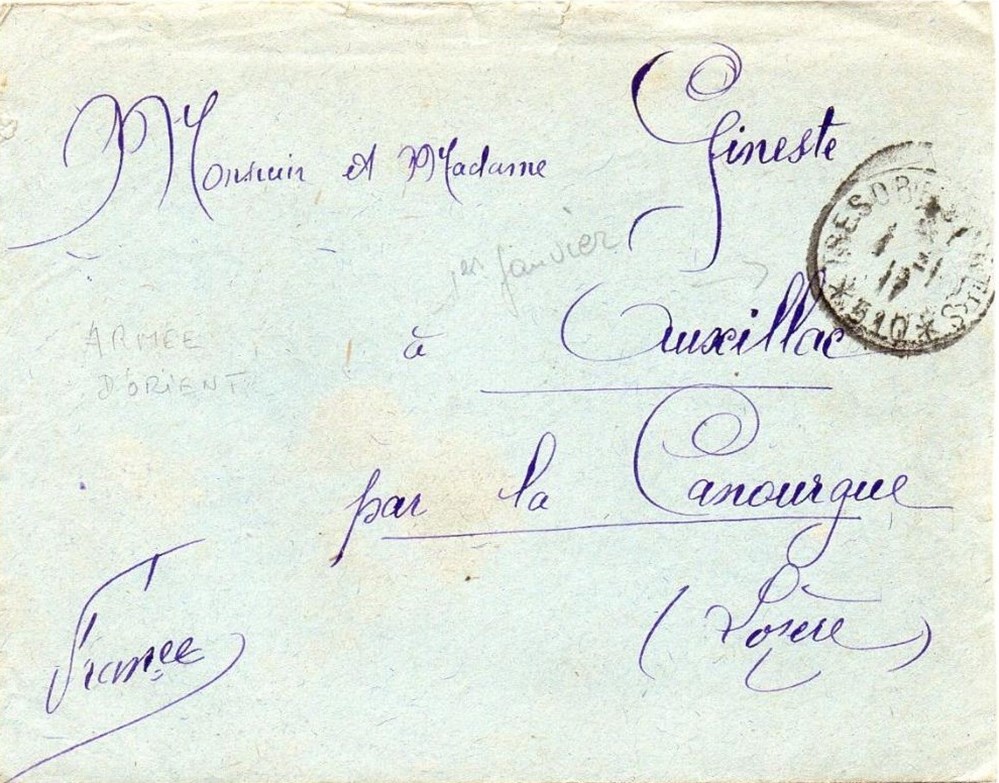 Monsieur et Madame Gineste
1er Janvier
ARMÉE
D'ORIENT
à Auxillac
par la Canourgue
(Lozère)
France
TRESOR ET POSTES
*510*